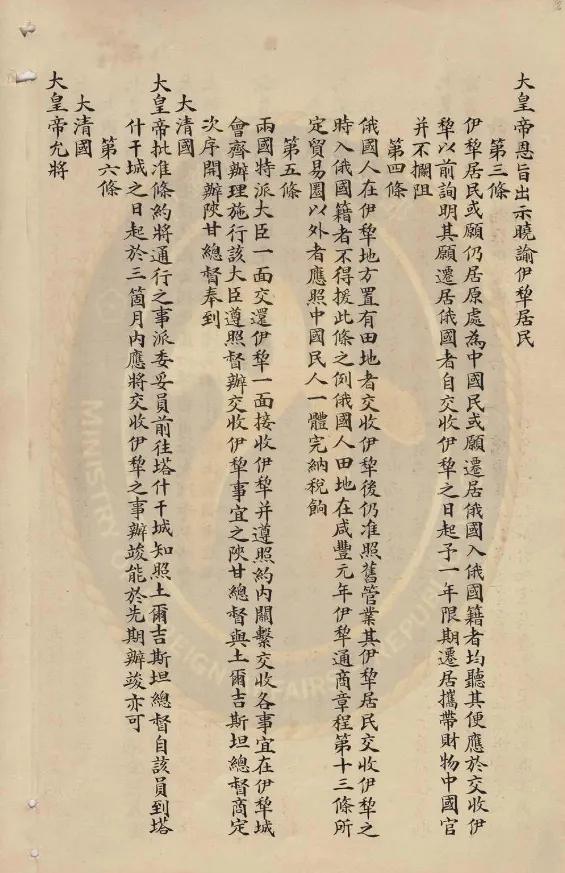 大皇帝恩旨出示曉諭伊犂居民
第三條
伊犂居民或願仍居原處為中國民或願遷居俄國入俄國籍者均聽其便應於交收伊
犂以前詢明其願遷居俄國者自交收伊犂之日起予一年限期遷居攜帶財物中國官
并不攔阻
第四條
俄國人在伊犂地方置有田地者交收伊犂後仍准照舊管業其伊犂居民交收伊犂之
時入俄國籍者不得援此條之例俄國人田地在咸豐元年伊犂通商章程第十三條所
定貿易圈以外者應照中國民人一體完納稅餉
第五條
兩國特派大臣一面交還伊犂一面接收伊犂并遵照約內關繫交收各事宜在伊犂城
會齊辦理施行該大臣遵照督辦交收伊犂事宜之陝甘總督與土爾吉斯坦總督商定
次序開辦陝甘總督奉到
大清國
大皇帝批准條約將通行之事派委妥員前往塔什干城知照土爾吉斯坦總督自該員到塔
什干城之日起於三箇月內應將交收伊犂之事辦竣能於先期辦竣亦可
第六條
大清國
大皇帝允將